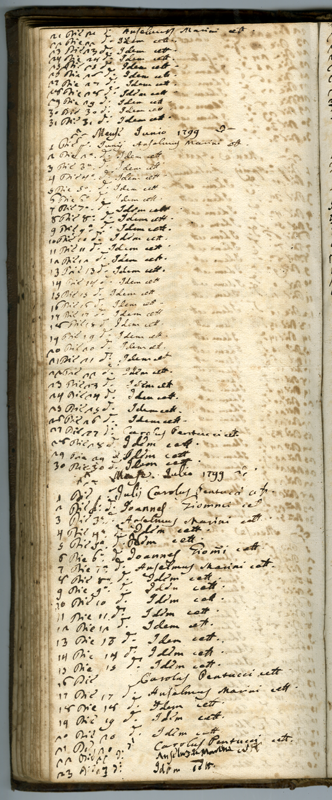 21 Die 21 d. Anselmus Marini cett
22 Die 22 d. Idem cett.
23 Die 23 d. Idem cett.
24 Die 24 d. Idem cett.
25 Die 25 d. Idem cett.
26 Die 26 d. Idem cett.
27 Die 27 d. Idem cett.
28 Die 28 d. Idem cett.
29 Die 29 d. Idem cett
30 Die 30 d. Idem cett
31 Die 31 d. Idem cett.
Mense Junio 1799
1 Die Junij Anselmus Marini cett
2 Die 2 d. Idem cett
3 Die 3 d. Idem cett
4 Die 4 d. Idem cett
5 Die 5 d. Idem cett
6 Die 6 d. Idem cett.
7 Die 7 d. Idem cett.
8 Die 8 d. Idem cett.
9 Die 9 d. Idem cett.
10 Die 10 d. Idem cett.
11 Die 11 d. Idem cett.
12 Die 12 d. Idem cett.
13 Die 13 d. Idem cett.
14 Die 14 d. Idem cett
15 Die 15 d. Idem cett
16 Die 16 d. Idem cett
17 Die 17 d. Idem cett
18 Die 18 d. Idem cett
19 Die 19 d. Idem cett
20 Die 20 d. Idem cett
21 Die 21 d. Idem cett
22 Die 22 d. Idem cett.
23 Die 23 d. Idem cett
24 Die 24 d. Idem cett.
25 Die 25 d. Idem cett.
26 Die 26 d. Idem cett.
27 Die 27 d. Carolus Pantucci cett.
28 Die 28 d. Idem cett.
29 Die 29 d. Idem cett
30 Die 30 d. Idem cett
Mense Julio 1799
1 Die Julij Carolus Pantucci cett.
2 Die 2 d. Joannes cett
3 Die 3 d. Anselmus Marini cett
4 Die 4 d. Idem cett.
5 Die 5 d. Idem cett.
6 Die 6 d. Joannes cett
7 Die 7 d. Anselmus Marini cett
8 Die 8 d. Idem cett.
9 Die 9 d. Idem cett
10 Die 10 d. Idem cett.
11 Die 11 d. Idem cett
12 Die 12 d. Idem cett.
13 Die 13 d. Idem cett.
14 Die 14 d. Idem cett.
15 Die 15 d. Idem cett.
16 Die Carolus Pantucci cett
17 Die 17 d. Anselmus Marini cett.
18 Die 18 d. Idem cett
19 Die 19 d. Idem cett.
20 Die 20 d. Idem cett
21 Die 21 d. Carolus Pantucci cett.
22 Die 22 d. Anselmus Marini cett
23 Die 23 d. Idem cett.